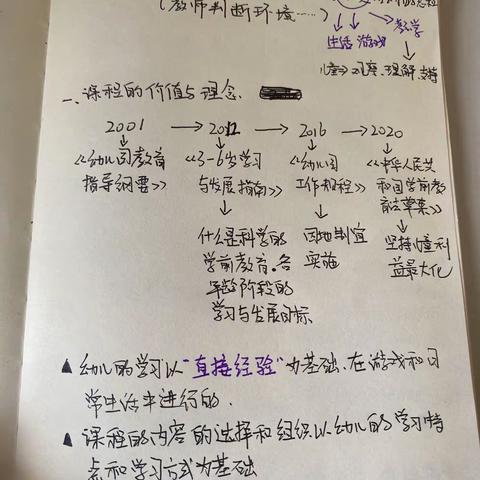 (教师判断环境……)
教学
生活 游戏
儿童→观察、理解、支持
一、课程的价值与理念、
2001 → 2012 → 2016 → 2020
《幼儿园教育 《3-6岁学习 《幼儿园 《中华人民共
指导纲要》 与发展指南》 工作规程》 和国学前教
育法草案》
什么是科学的 因地制宜 坚持儿童利
学前教育。各 实施 益最大化
年龄阶段的
学习与发展目标
▲ 幼儿的学习以“直接经验”为基础、在游戏和日
常生活中进行的.
▲ 课程的内容的选择和组织以幼儿的学习特
点和学习方式为基础